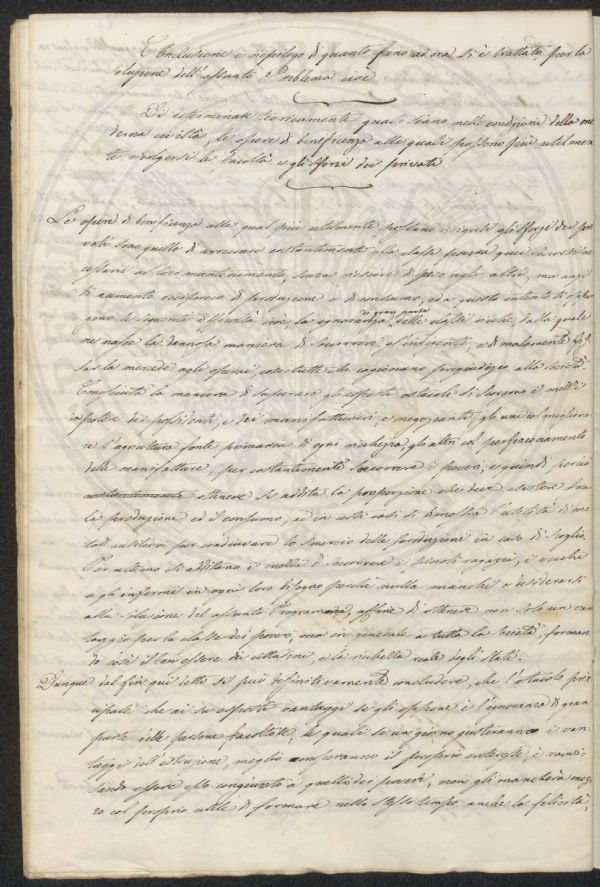 Conclusione e riepilogo di quanto fino ad ora si è trattato per la
soluzione dell'assunto Problema cioè
Di determinare teoricamente quali siano nelle condizioni della mo
derna civiltà, le opere di beneficenza alle quali possono più utilmen
te rivolgersi le facoltà e gli sforzi dei privati
Le opere di beneficenza alle quali più utilmente possano dirigersi gli sforzi dei pri
vati sono quelle di arrecare costantemente alla classe povera quei soccorsi ne
cessarii al loro mantenimento, senza riescire di peso agli altri, ma anzi
di aumento reciproco di produzione e di consumo, ed a questo intento si oppon
gono le seguenti difficoltà cioè, la ignoranza di gran parte delle classi ricche, dalla quale
ne nasce la dannosa maniera di soccorrere gl'indigenti, e di malamente fis
sar la mercede agli operai, ostacoli tutti che cagionano pregiudizio alla società.
Conosciuta la maniera di superare gli esposti ostacoli si scorgono i mezzi
in potere dei possidenti, e dei manifatturieri, e negozianti, gli uni col migliora
re l'agricoltura fonte primaria di ogni richezza, gli altri col perfezionamento
delle manifatture, per costantemente soccorrere i poveri, e quindi perciò
costantemente ottenere si addita la proporzione che deve esistere fra
la produzione ed il consumo, ed in certi casi si dimostra l'utilità di me
todi per coadiuvare lo smercio delle produzioni in caso di
Per ultimo si additano i modi di soccorrere i piccoli ragazzi, i vecchi
e gli infermi in ogni loro bisogno perchè nulla manchi a desiderarsi
alla soluzione del assunto Programma, affine di ottenere non solo un van
taggio per la classe dei poveri, ma in generale a tutta la Società, forman
do così il ben essere dei cittadini, e la richezza reale degli Stati.
Dunque dal fin qui detto si può definitivamente concludere, che l'ostacolo prin
cipale che ai su esposti vantaggi si oppone è l'ignoranza di gran
parte delle persone facoltose, le quali se un giorno gusteranno i van
taggi dell'istruzione, meglio conosceranno il proprio interesse, e ravvi
sando essere esso congiunto a quello dei poveri, non gli mancherà mez
zo col proprio utile di formare nello stesso tempo anche la felicità,